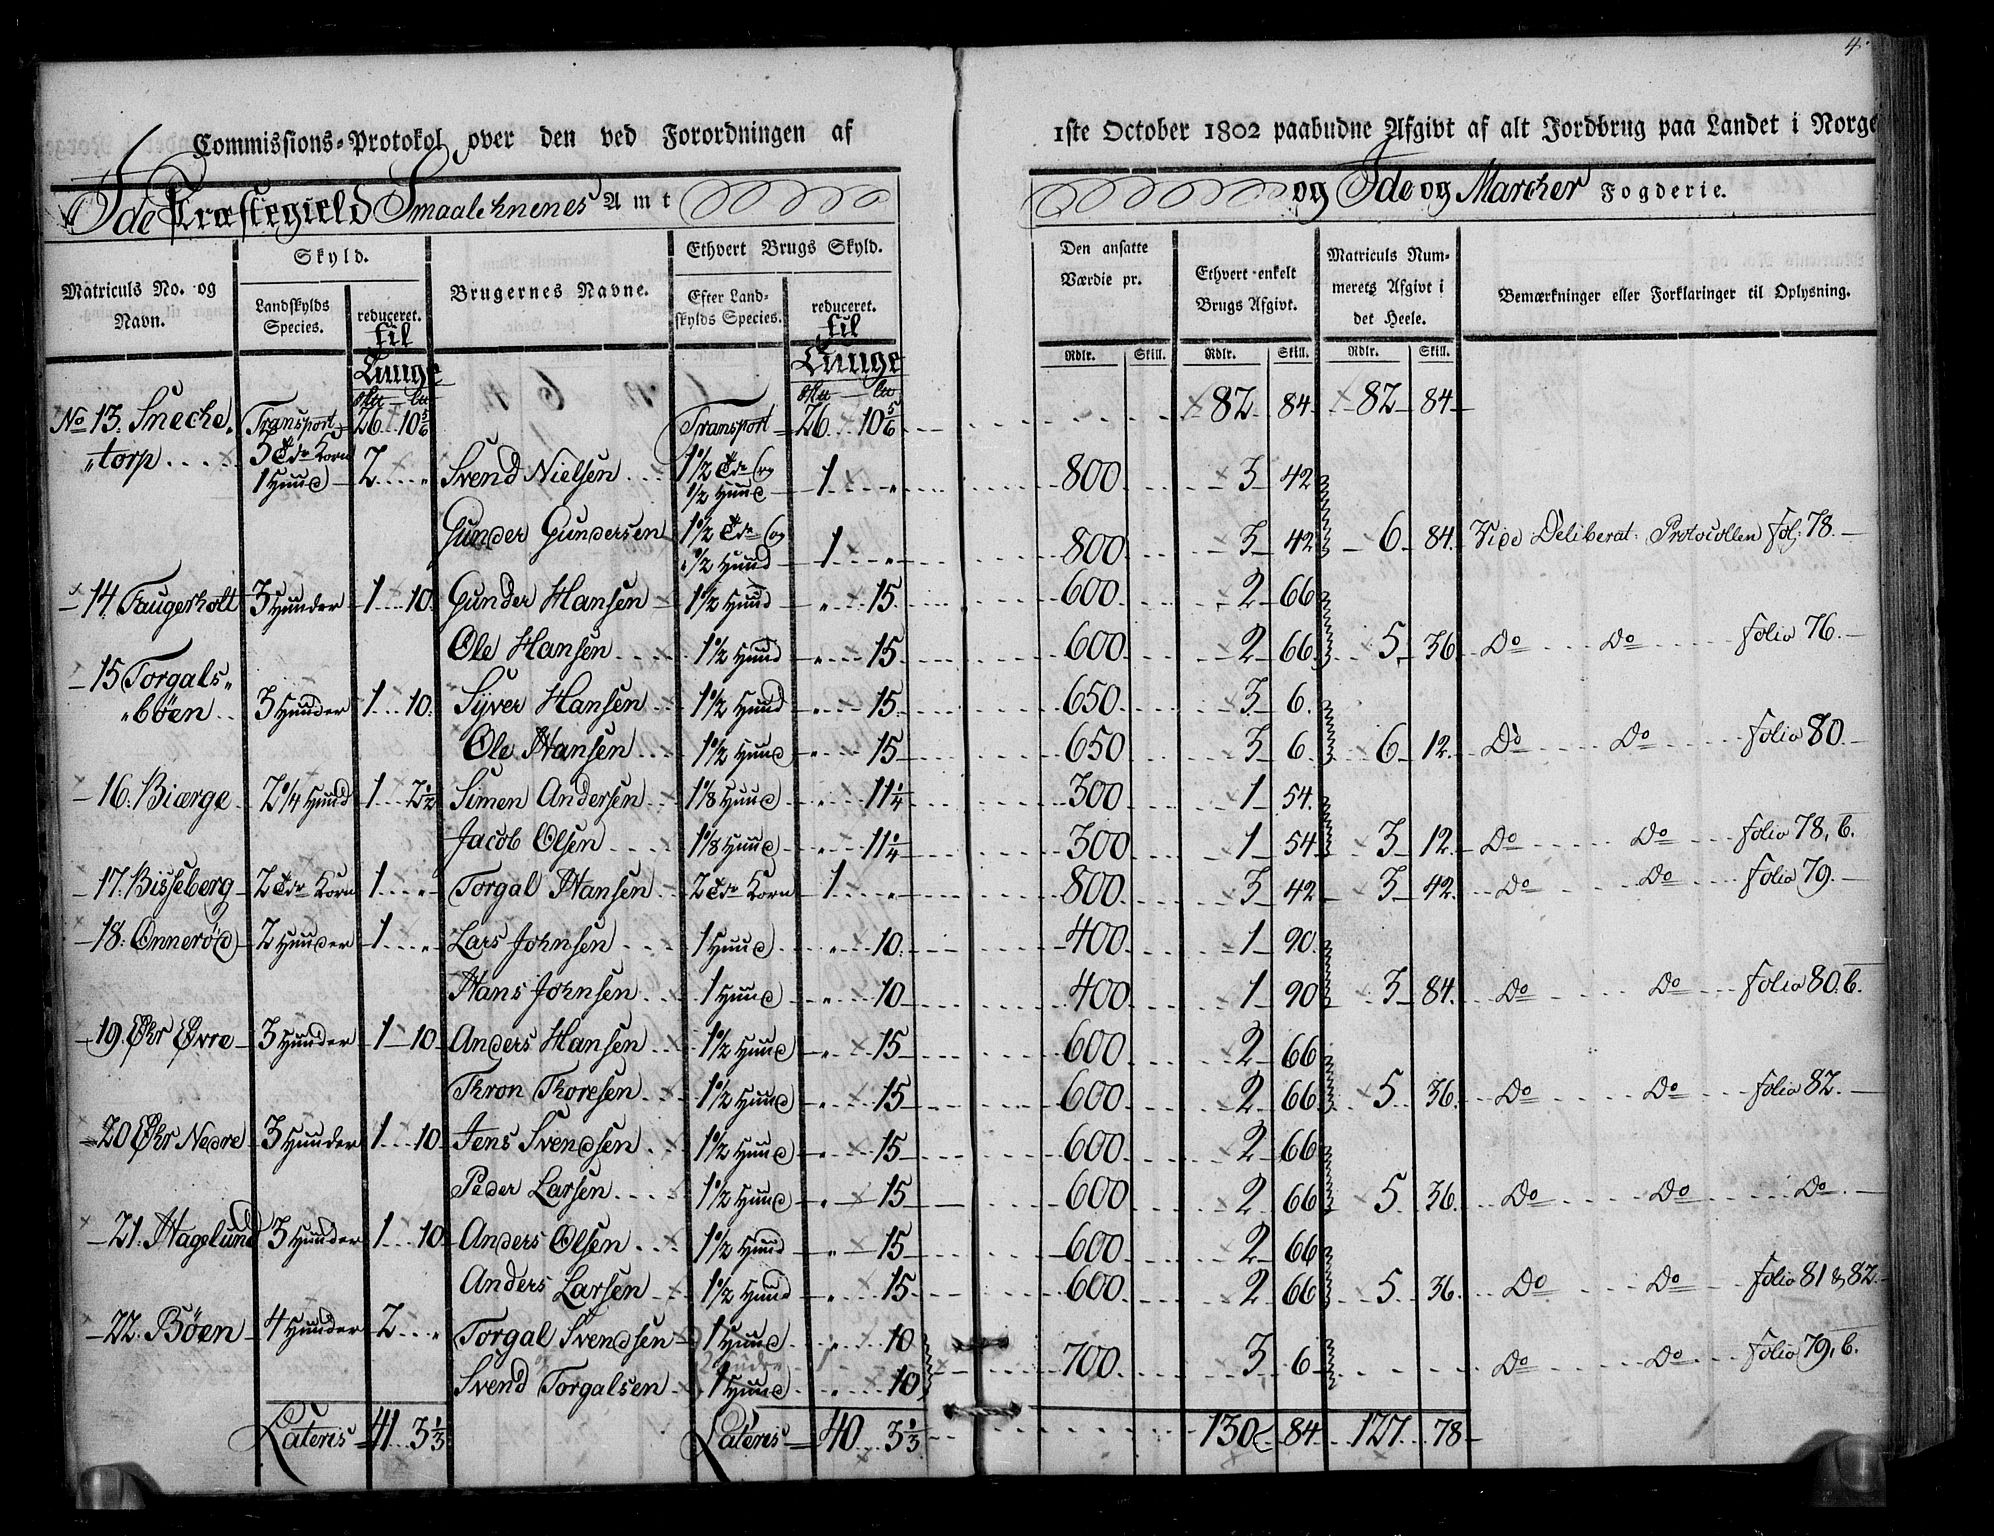 4.
Commissions-Protokol over den ved Forordningen af 1ste October 1802 paabudne Afgivt af alt Jordbrug paa Landet i Norge
Ide Præstegield Smaalehnenes Amt og Ide og Marcker Fogderie.
Matriculs No. og Navn. | Skyld. | Brugernes Navne. | Ethvert Brugs Skyld. | Den ansatte Værdie pr. | Ethvert enkelt Brugs Afgivt. | Matriculs Nummerets Afgivt i det Heele. | Bemærkninger eller Forklaringer til Oplysning.
Landskylds Species. | reduceret. til Tunge | Efter Landskylds Species. | reduceret. til Tunge
Rdlr. Skill. | Rdlr. Skill. | Rdlr. Skill.
Transport 26 10 5/6 Transport 26 10 5/6 82 84 82 84
No 13. Snecke„
„torp 3 Tdr Korn 1 Huud 2 „ Svend Nielsen 1 1/2 Tdr og 1/2 Huud 1 „ 800 3 42
Gunder Gundersen 1 1/2 Tdr og 1/2 Huud 1 „ 800 3 42 6 84 Vide Deliberat: Protocollen fol: 78.
14 Faugerholt 3 Huuder 1 10. Gunder Hansen 1 1/2 Huud „ 15. 600 2 66
Ole Hansen 1 1/2 Huud „ 15 600 2 66 5 36 Do Do folio 76.
15 Torgals„
„böen 3 Huuder 1 10. Syver Hansen 1 1/2 Huud „ 15. 650 3 6.
Ole Hansen 1 1/2 Huud „ 15 650 3 6 6 12 Do Do folio 80.
16. Biærge 2 1/4 Huud 1 2 1/2 Simen Andersen 1 1/8 Huud „ 11 1/4 300 1 54.
Jacob Olsen 1 1/8 Huud „ 11 1/4 300 1 54 3 12. Do Do folio 78, b.
17. Bisseberg 2 Tdr Korn 1 „ Torgal Hansen 2 Tdr Korn 1 „ 800 3 42 3 42 Do Do folio 79.
18. Onneröd 2 Huuder 1 „ Lars Johnsen 1 Huud „ 10. 400 1 90.
Hans Johnsen 1 Huud „ 10 400 1 90 3 84. Do Do folio 80. b.
19. Øhr Øvre 3 Huuder 1 10 Anders Hansen 1 1/2 Huud „ 15 600 2 66
Thron Thoresen 1 1/2 Huud „ 15 600 2 66 5 36. Do Do folio 82.
20 Øhr Nedre 3 Huuder 1 10 Jens Svendsen 1 1/2 Huud „ 15 600 2 66
Peder Larsen 1 1/2 Huud „ 15 600 2 66 5 36. Do Do Do.
21. Hagelund 3 Huuder 1 10 Anders Olsen 1 1/2 Huud „ 15 600 2 66
Anders Larsen 1 1/2 Huud „ 15 600 2 66 5 36. Do Do folio 81 & 82.
22. Böen 4 Huuder 2 „ Torgal Svendsen 1 Huud „ 10
Svend Torgalsen 1 Huud „ 10 700 3 6 Do Do folio 79, b.
Lateris 41 3 1/3 Lateris 40 3 1/3 130 84 127 78